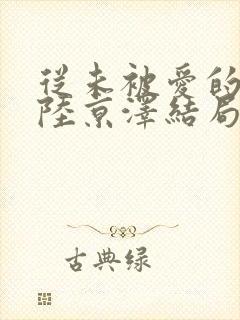 從未被愛的
陸京澤結局
古典绿